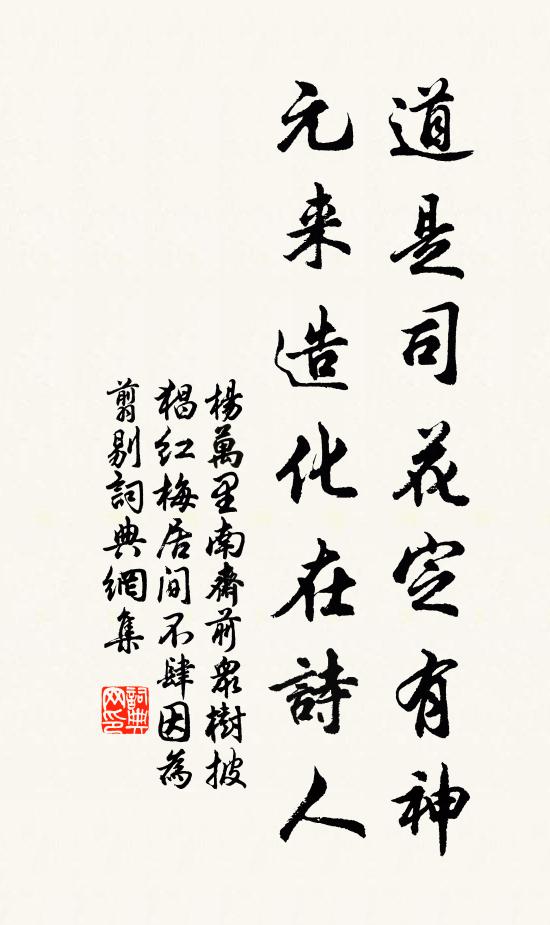 道是司花定有神
元来造化在詩人
楊萬里南齋前眾樹披
猖红梅居间不肆因為
剪剔詞典網集
詞典
网印